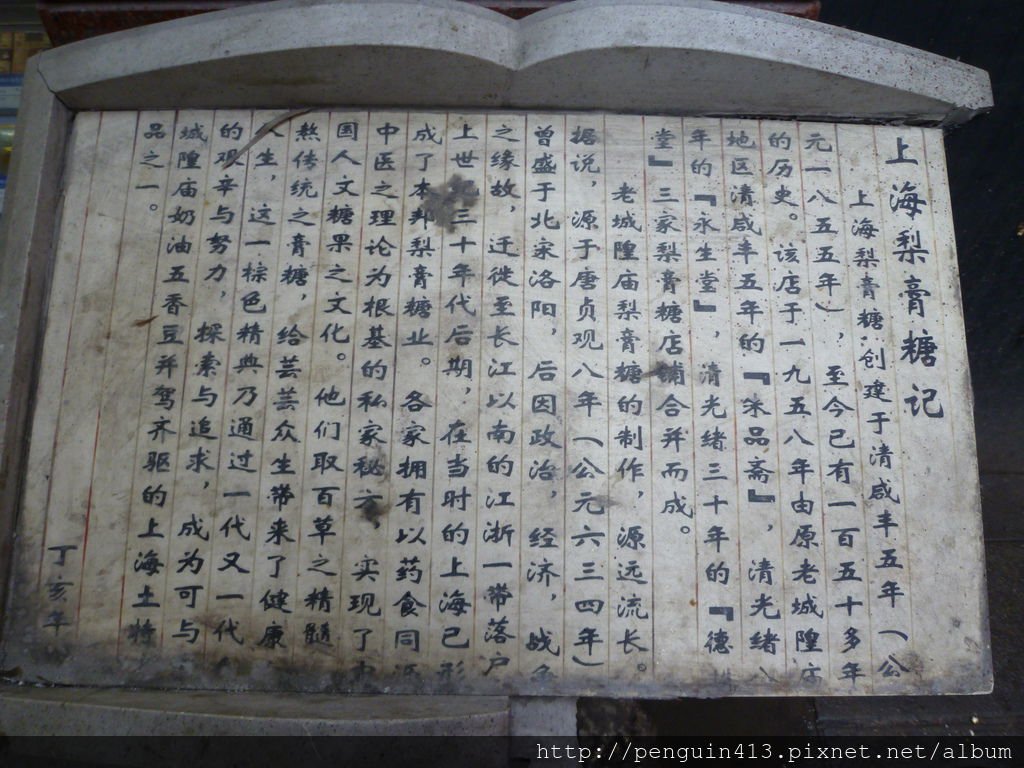 上海梨膏糖记
上海梨膏糖:创建于清咸丰五年（公
元一八五五年），至今已有一百五十多年
的历史。该店于一九五八年由原老城隍庙
地区清咸丰五年的『朱品斋』，清光绪八
年的『永生堂』，清光绪三十年的『德
堂』三家梨膏糖店铺合并而成。
老城隍庙梨膏糖的制作，源远流长。
据说，源于唐贞观八年（公元六三四年）
曾盛于北宋洛阳，后因政治，经济，战争
之缘故，迁徙至长江以南的江浙一带落户
上世纪三十年代后期，在当时的上海已形
成了本邦梨膏糖业。各家拥有以药食同源
中医之理论为根基的私家秘方，实现了中
国人文糖果之文化。他们取百草之精髓
熬传统之膏糖，给芸芸众生带来了健康
人生，这一棕色精典乃通过一代又一代
的艰辛与努力，探索与追求，成为可与
城隍庙奶油五香豆并驾齐驱的上海土特
品之一。
丁亥年
http://penguin413.pixnet.net/album